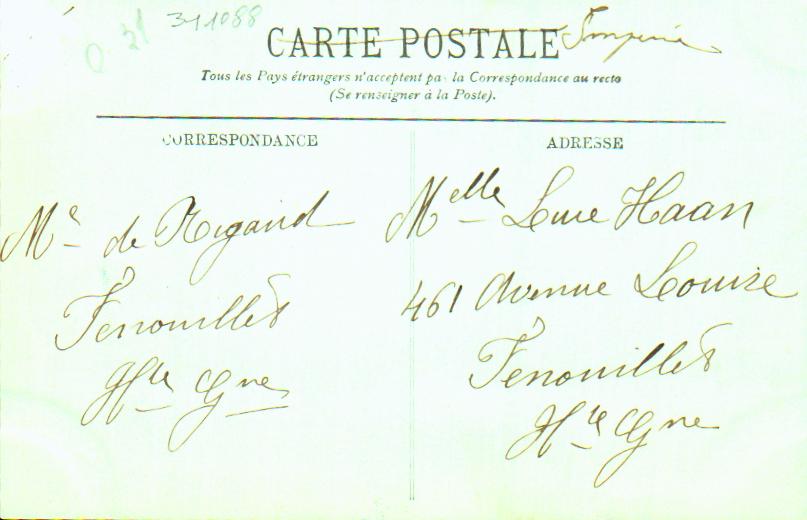 341088
CARTE POSTALE
Tous les Pays étrangers n'acceptent pas la Correspondance au recto
(Se renseigner à la Poste).
CORRESPONDANCE
Me de Rigaud
Fenouillet
Hte Gne
ADRESSE
Melle Luce Haan
461 Avenue Louise
Fenouillet
Hte Gne